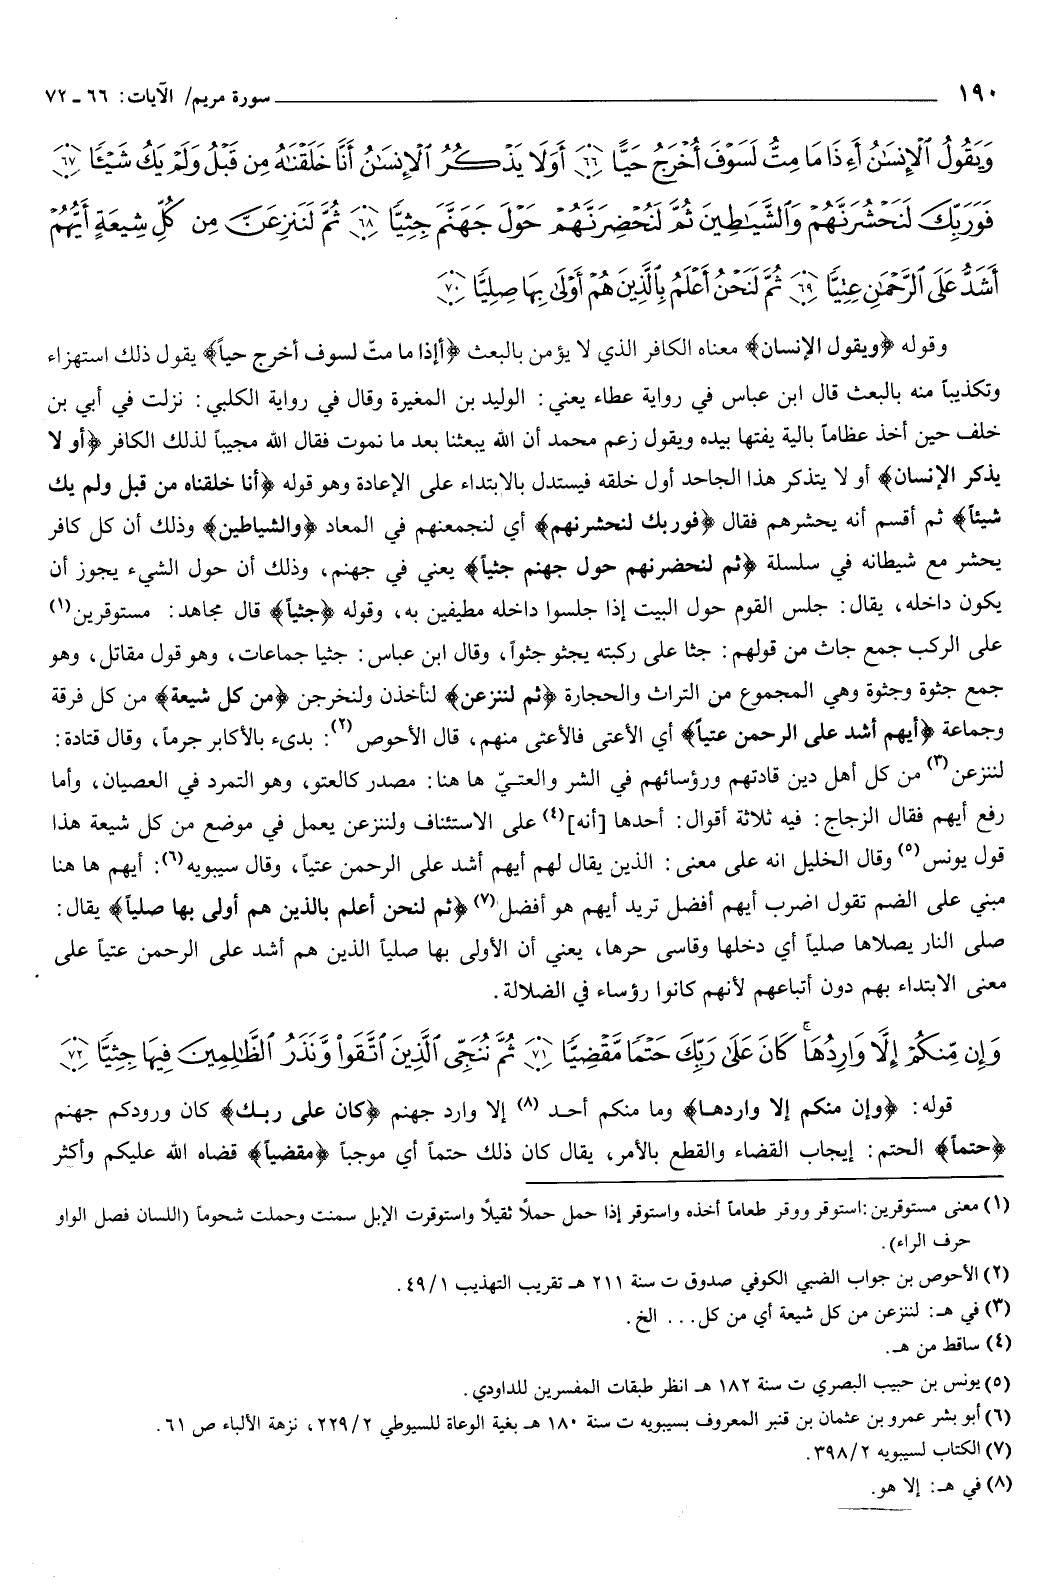 ١٩٠ سورة مريم/ الآيات: ٦٦ ـ ٧٢
وَيَقُولُ ٱلْإِنسَٰنُ أَءِذَا مَا مِتُّ لَسَوْفَ أُخْرَجُ حَيًّا ٦٦ أَوَلَا يَذْكُرُ ٱلْإِنسَٰنُ أَنَّا خَلَقْنَٰهُ مِن قَبْلُ وَلَمْ يَكُ شَيْـًٔا ٦٧
فَوَرَبِّكَ لَنَحْشُرَنَّهُمْ وَٱلشَّيَٰطِينَ ثُمَّ لَنُحْضِرَنَّهُمْ حَوْلَ جَهَنَّمَ جِثِيًّا ٦٨ ثُمَّ لَنَنزِعَنَّ مِن كُلِّ شِيعَةٍ أَيُّهُمْ
أَشَدُّ عَلَى ٱلرَّحْمَٰنِ عِتِيًّا ٦٩ ثُمَّ لَنَحْنُ أَعْلَمُ بِٱلَّذِينَ هُمْ أَوْلَىٰ بِهَا صِلِيًّا ٧٠
وقوله ﴿ويقول الإنسان﴾ معناه الكافر الذي لا يؤمن بالبعث ﴿أإذا ما متّ لسوف أخرج حياً﴾ يقول ذلك استهزاء
وتكذيباً منه بالبعث قال ابن عباس في رواية عطاء يعني: الوليد بن المغيرة وقال في رواية الكلبي: نزلت في أبي بن
خلف حين أخذ عظاماً بالية يفتها بيده ويقول زعم محمد أن الله يبعثنا بعد ما نموت فقال الله مجيباً لذلك الكافر ﴿أو لا
يذكر الإنسان﴾ أو لا يتذكر هذا الجاحد أول خلقه فيستدل بالابتداء على الإعادة وهو قوله ﴿أنا خلقناه من قبل ولم يك
شيئاً﴾ ثم أقسم أنه يحشرهم فقال ﴿فوربك لنحشرنهم﴾ أي لنجمعنهم في المعاد ﴿والشياطين﴾ وذلك أن كل كافر
يحشر مع شيطانه في سلسلة ﴿ثم لنحضرنهم حول جهنم جثياً﴾ يعني في جهنم، وذلك أن حول الشيء يجوز أن
يكون داخله، يقال: جلس القوم حول البيت إذا جلسوا داخله مطيفين به، وقوله ﴿جثياً﴾ قال مجاهد: مستوقرين(١)
على الركب جمع جاث من قولهم: جثا على ركبته يجثو جثواً، وقال ابن عباس: جثيا جماعات، وهو قول مقاتل، وهو
جمع جثوة وجثوة وهي المجموع من التراث والحجارة ﴿ثم لننزعن﴾ لنأخذن ولنخرجن ﴿من كل شيعة﴾ من كل فرقة
وجماعة ﴿أيهم أشد على الرحمن عتياً﴾ أي الأعتى فالأعتى منهم، قال الأحوص(٢): بدىء بالأكابر جرماً، وقال قتادة:
لننزعن(٣) من كل أهل دين قادتهم ورؤسائهم في الشر والعتيّ ها هنا: مصدر كالعتو، وهو التمرد في العصيان، وأما
رفع أيهم فقال الزجاج: فيه ثلاثة أقوال: أحدها [أنه](٤) على الاستئناف ولننزعن يعمل في موضع من كل شيعة هذا
قول يونس(٥) وقال الخليل انه على معنى: الذين يقال لهم أيهم أشد على الرحمن عتياً، وقال سيبويه(٦): أيهم ها هنا
مبني على الضم تقول اضرب أيهم أفضل تريد أيهم هو أفضل(٧) ﴿ثم لنحن أعلم بالذين هم أولى بها صلياً﴾ يقال:
صلى النار يصلاها صلياً أي دخلها وقاسى حرها، يعني أن الأولى بها صلياً الذين هم أشد على الرحمن عتياً على
معنى الابتداء بهم دون أتباعهم لأنهم كانوا رؤساء في الضلالة.
وَإِن مِّنكُمْ إِلَّا وَارِدُهَا ۚ كَانَ عَلَىٰ رَبِّكَ حَتْمًا مَّقْضِيًّا ٧١ ثُمَّ نُنَجِّى ٱلَّذِينَ ٱتَّقَوا۟ وَّنَذَرُ ٱلظَّٰلِمِينَ فِيهَا جِثِيًّا ٧٢
قوله: ﴿وإن منكم إلا واردها﴾ وما منكم أحد (٨) إلا وارد جهنم ﴿كان على ربك﴾ كان ورودكم جهنم
﴿حتماً﴾ الحتم: إيجاب القضاء والقطع بالأمر، يقال كان ذلك حتماً أي موجباً ﴿مقضياً﴾ قضاه الله عليكم وأكثر
(١) معنى مستوقرين: استوقر ووقر طعاماً أخذه واستوقر إذا حمل حملاً ثقيلاً واستوقرت الإبل سمنت وحملت شحوماً (اللسان فصل الواو
حرف الراء).
(٢) الأحوص بن جواب الضبي الكوفي صدوق ت سنة ٢١١ هـ تقريب التهذيب ٤٩/١.
(٣) في هـ: لننزعن من كل شيعة أي من كل... الخ.
(٤) ساقط من هـ.
(٥) يونس بن حبيب البصري ت سنة ١٨٢ هـ انظر طبقات المفسرين للداودي.
(٦) أبو بشر عمرو بن عثمان بن قنبر المعروف بسيبويه ت سنة ١٨٠ هـ بغية الوعاة للسيوطي ٢٢٩/٢، نزهة الألباء ص ٦١.
(٧) الكتاب لسيبويه ٣٩٨/٢.
(٨) في هـ: إلا هو.